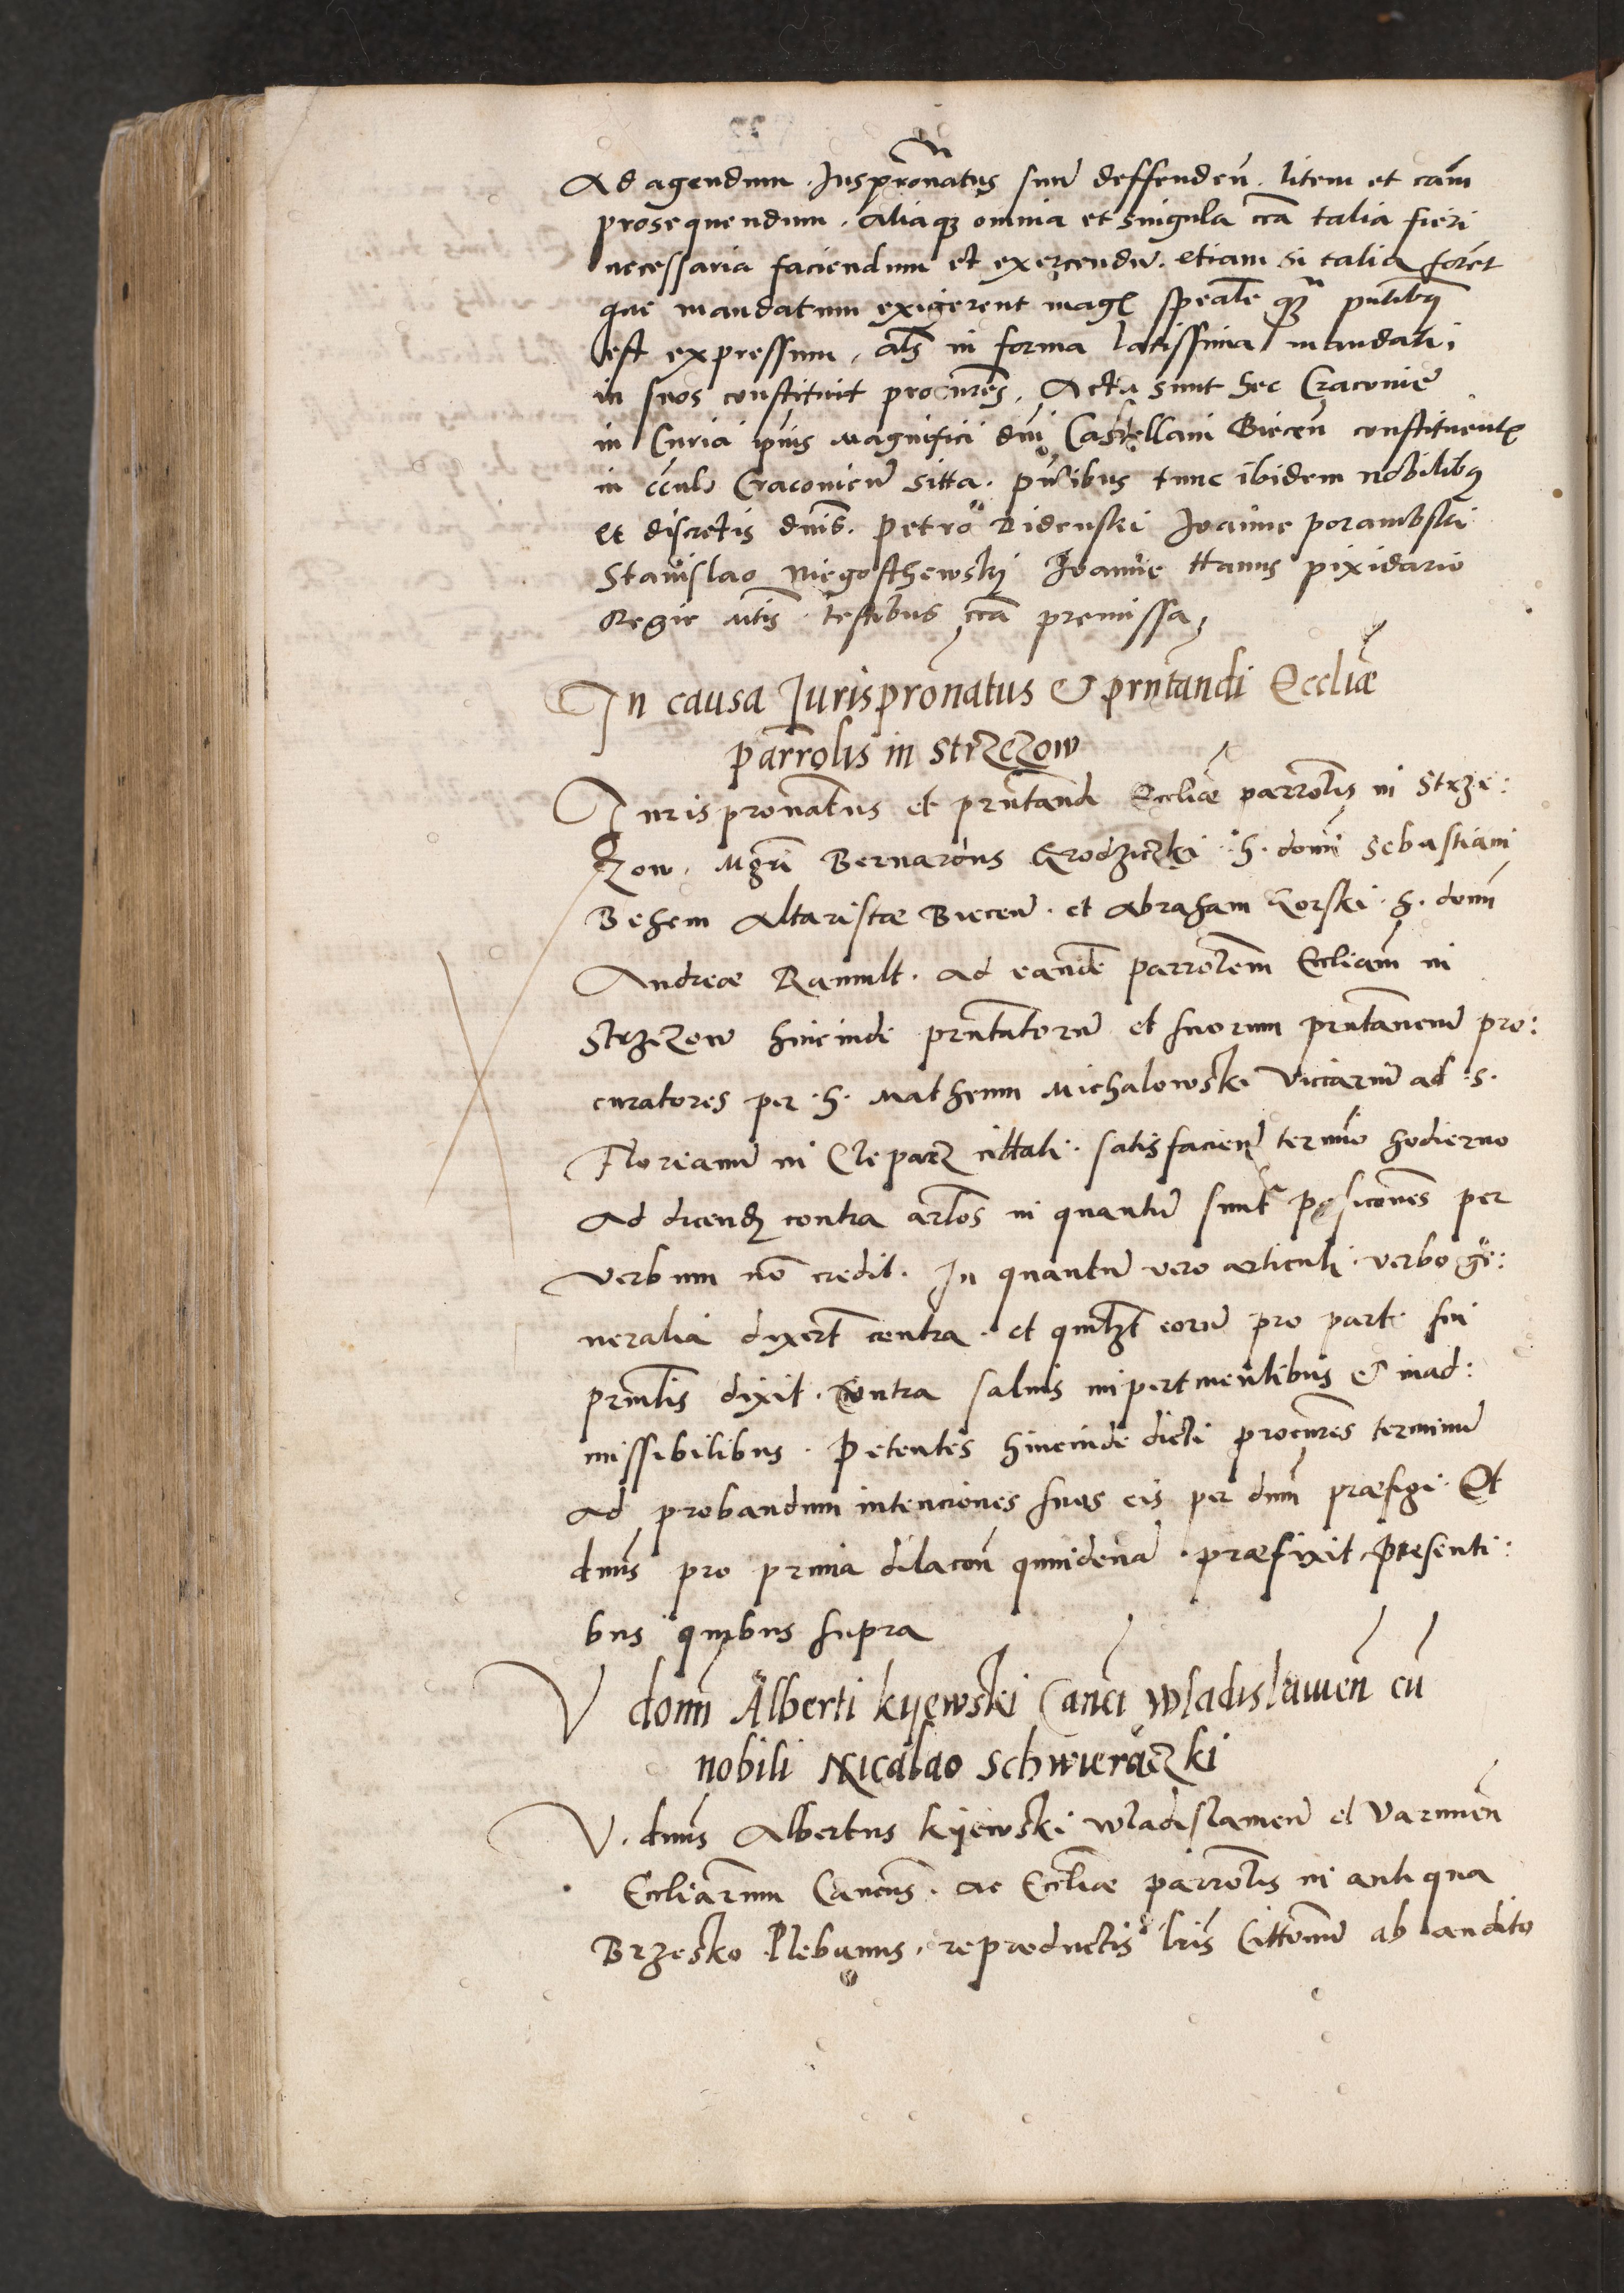 Ad agendum . Juspronatus suu deffenden . litem et cam
prosequendum . aliaq3 omnia et singula cca talia fieri
necessaria faciendum et exercendu . etiam si talia foret
que mandatum exigerent mag speale q3 pntibq
est expressum , als in forma latissima mandati
in suos constituit procures . Acta sunt hec Cracovie
in Curia ipius Magnifici dni Castellani Biecen constituent
in Craconien sitta . pntibus tunc ibidem nobilibq
et discretis dnis . Petro Bidenski Joanne porambski
Stanislao Niegosthewsky Joanne Hanus pixidario
Regie Mtis testibus cca premissa
In causa Jurispronatus & prntandi Eccliæ
parrolis in Strzezow
Jurispronatus et prntandi Eccliæ parrolis in Strze:
zow . Mgri Bernardus Grodziczki . H . domi Sebastiani
Behem Altaristæ Biecen . et Abraham Gorski . H . domi
Andreæ Ramult . ad eande parrolem Eccliam in
Strzezow hincinde prntatoru et suorum prntaneum pro:
curatores per . H . Matheum Michalowski Viccarium ad . S .
Florianu in Cleparz cittati . satisfacien termino hodierno
Ad dicend contra artlos in quantu sunt posicones per
verbum no credit . In quantu vero articuli . verbo ge:
neralia dixert contra . et quilt eoru pro parte sui
prncilis dixit . Contra salvis impertinentibus & inad:
missibilibus . Petentes hincinde dicti procures terminu
ad probandum intenciones suas eis per dnm præfigi . Et
dnus pro prima dilacon quindena . præfixit presenti:
bus quibus supra
V donni Alberti Kyewski Canci Wladislavien cu
nobili Nicalao Schwieraczki
V . dnus Albertus Kyewski Wladislavien et Varmien
Eccliarum Cancus . ac Eccliæ parrolis in antiqua
Brzesko Plebanus . reproductis lris Cittonu ab audito